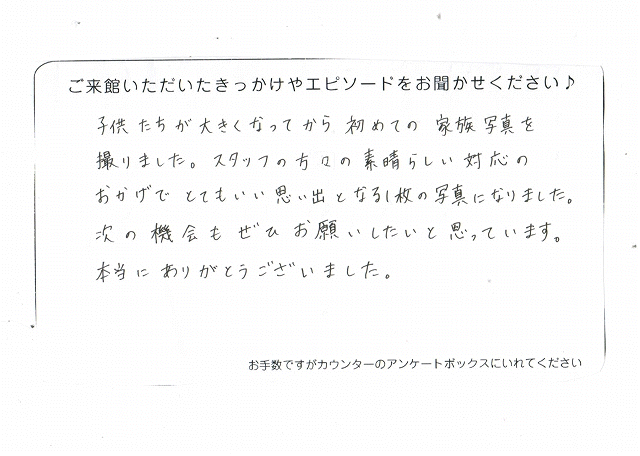 ご来館いただいたきっかけやエピソードをお聞かせください♪
子供たちが大きくなってから初めての家族写真を
撮りました。スタッフの方々の素晴らしい対応の
おかげでとてもいい思い出となる1枚の写真になりました。
次の機会もぜひお願いしたいと思っています。
本当にありがとうございました。
お手数ですがカウンターのアンケートボックスにいれてください